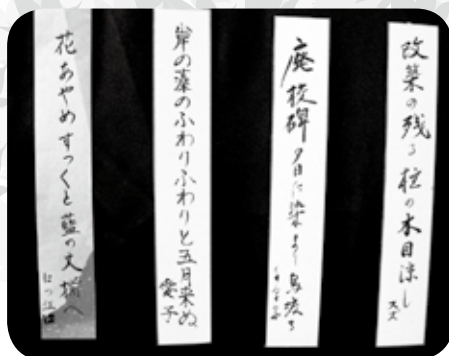 改築の残る柱の木目涼し
スズ
廃校碑夕日に染まり鳥渡る
岸の藻のふわりふわりと五月来ぬ
愛子
花あやめすっくと藍の丈揃へ